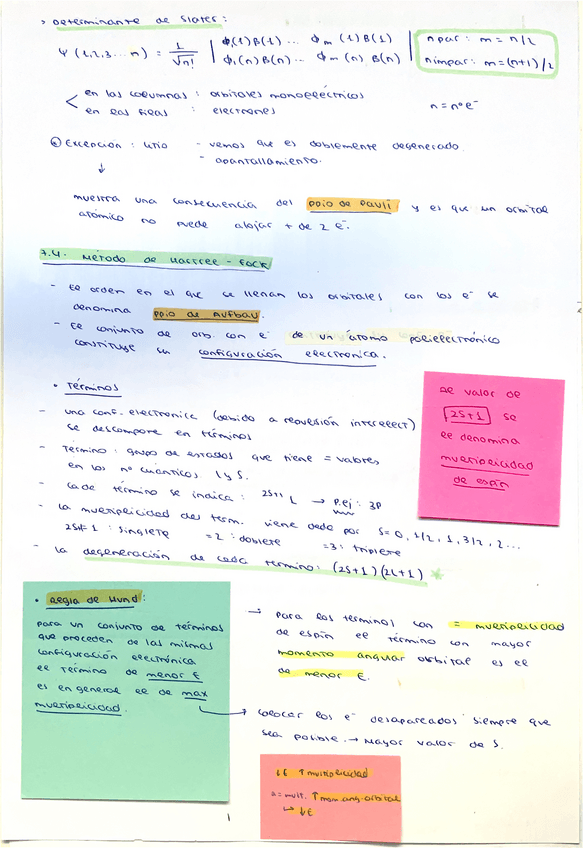 > Determinante de Slater:
Ψ (1,2,3 ... n) = 1/√n! | ϕ1(1)β(1) ... ϕm (1) β(1) |
| ϕ1(n)β(n) ... ϕm (n) β(n) |
n par: m = n/2
n impar: m = (n+1)/2
en las columnas : orbitales monoeléctricos
en las filas : electrones
n = nº e⁻
Excepción : litio - vemos que es doblemente degenerado.
- apantallamiento.
↓
muestra una consecuencia del ppio de Pauli y es que un orbital
atómico no puede alojar + de 2 e⁻.
7.4. Método de Hartree - Fock
- El orden en el que se llenan los orbitales con los e⁻ se
denomina ppio de Aufbau.
- El conjunto de orb. con e⁻ de un átomo polielectrónico
constituye su configuración electrónica.
• Términos
- una conf. electronica (debido a repulsión interelect)
se descompone en términos
- Término : grupo de estados que tiene = valores
en los nº cuánticos l y S.
- Cada término se indica : 2S+1 L → p.ej : 3P
- la multiplicidad del term. viene dada por S = 0, 1/2, 1, 3/2, 2 ...
2S+1 = 1 : singlete = 2 : doblete = 3 : triplete
- la degeneración de cada termino : (2S+1) (2L+1) *
El valor de
2S+1 se
le denomina
multiplicidad
de espín
• Regla de Hund :
para un conjunto de términos
que proceden de las mismas
configuración electrónica
el término de menor E
es en general el de max
multiplicidad.
→ para los terminos con = multiplicidad
de espín el término con mayor
momento angular orbital es el
de menor E.
→ colocar los e⁻ desapareados siempre que
sea posible. → Mayor valor de S.
↓E ↑multiplicidad
a = mult. ↑mom. ang. orbital
↳ ↓E